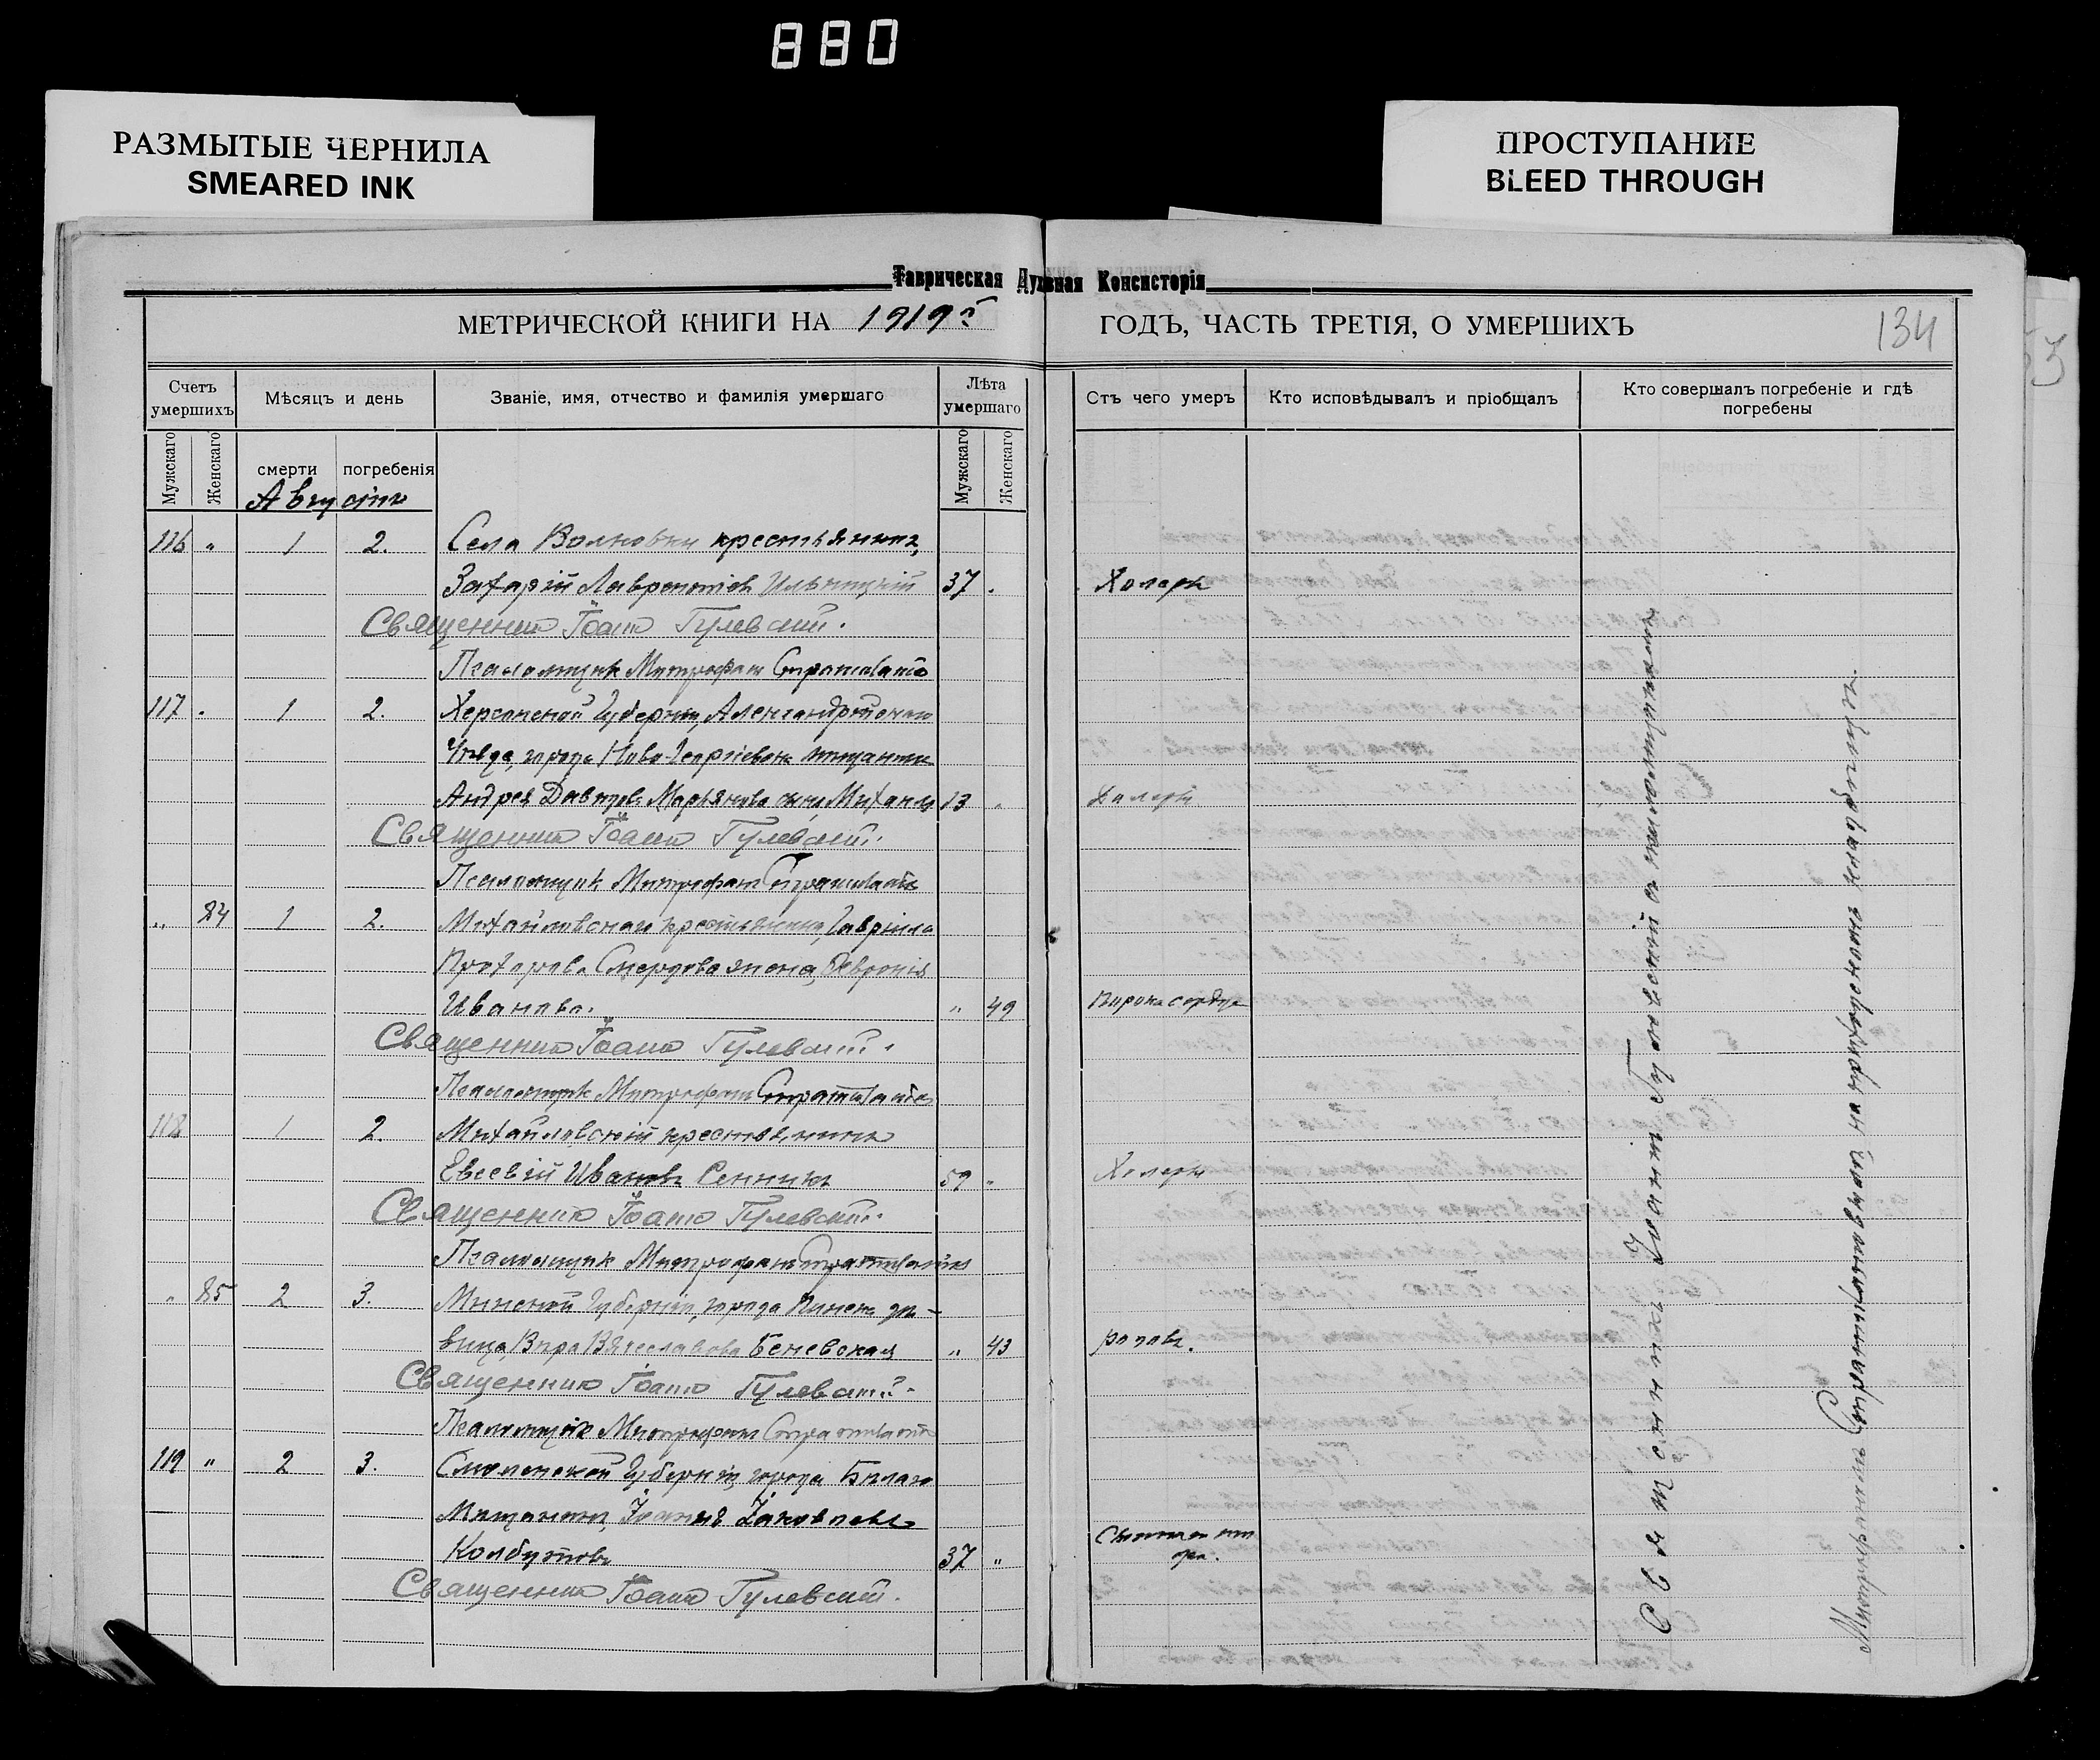 880
РАЗМЫТЫЕ ЧЕРНИЛА
SMEARED INK
ПРОСТУПАНИЕ
BLEED THROUGH
Таврическая Духовная Консисторія
МЕТРИЧЕСКОЙ КНИГИ НА 1919 г ГОДЪ, ЧАСТЬ ТРЕТІЯ, О УМЕРШИХЪ 134
53
Счетъ умершихъ
Мѣсяцъ и день
Званіе, имя, отчество и фамилія умершаго
Лѣта умершаго
Отъ чего умеръ
Кто исповѣдывалъ и пріобщалъ
Кто совершалъ погребеніе и гдѣ погребены
Мужскаго Женскаго смерти погребенія Мужскаго Женскаго
Августъ
116 " 1 2. Села Волковки крестьянинъ,
Захарій Лаврентіевъ Ильницкій 37 . Холеры
Священникъ Іоаннъ Гулевскій.
Псаломщикъ Митрофанъ
117 . 1 2. Херсонской Губерніи, Александрійскаго
Уѣзда, города Ново-Георгіевска мѣщанина
Андрея Давидова Марьянова сынъ, Михаилъ 13 " Холеры
Священникъ Іоаннъ Гулевскій.
Псаломщикъ Митрофанъ
" 84 1 2. Михайловскаго крестьянина, Гавріила
Прохорова Смердова жена, Февронія
Иванова. " 49 Порока сердца
Священникъ Іоаннъ Гулевскій.
Псаломщикъ Митрофанъ
118 1 2. Михайловскій крестьянинъ
Евсевій Ивановъ Сенникъ 59 " Холеры
Священникъ Іоаннъ Гулевскій.
Псаломщикъ Митрофанъ
" 85 2 3. Минской Губерніи, города Пинска дѣ-
вица, Вѣра Вячеславова Беневская " 43 родовъ.
Священникъ Іоаннъ Гулевскій.
Псаломщикъ Митрофанъ
119 " 2 3. Смоленской Губерніи, города Бѣлаго
Мѣщанинъ, Іоаннъ Іаковлевъ
Колбутовъ 37 "
Священникъ Іоаннъ Гулевскій.
Священникъ Іоаннъ Гулевскій съ псаломщикомъ
Митрофаномъ на приходскомъ кладбищѣ.